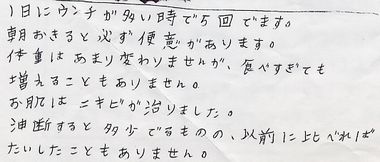 1日にウンチが多い時で5回でます。
朝おきると必ず便意があります。
体重はあまり変わりませんが、食べすぎても
増えることもありません。
お肌はニキビが治りました。
油断すると多少でるものの、以前に比べれば
たいしたこともありません。